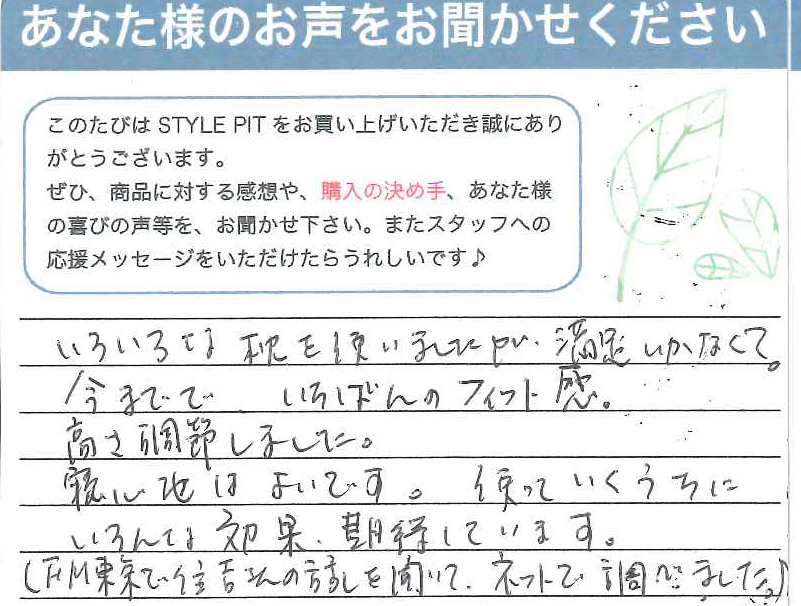 あなた様のお声をお聞かせください
このたびは STYLE PIT をお買い上げいただき誠にあり
がとうございます。
ぜひ、商品に対する感想や、購入の決め手、あなた様
の喜びの声等を、お聞かせ下さい。またスタッフへの
応援メッセージをいただけたらうれしいです♪
いろいろな枕を使いましたが、満足いかなくて。
今までで、いちばんのフィット感。
高さ調節しました。
寝心地はよいです。使っていくうちに
いろんな効果、期待しています。
(FM東京で住吉さんの話しを聞いて、ネットで調べました。)